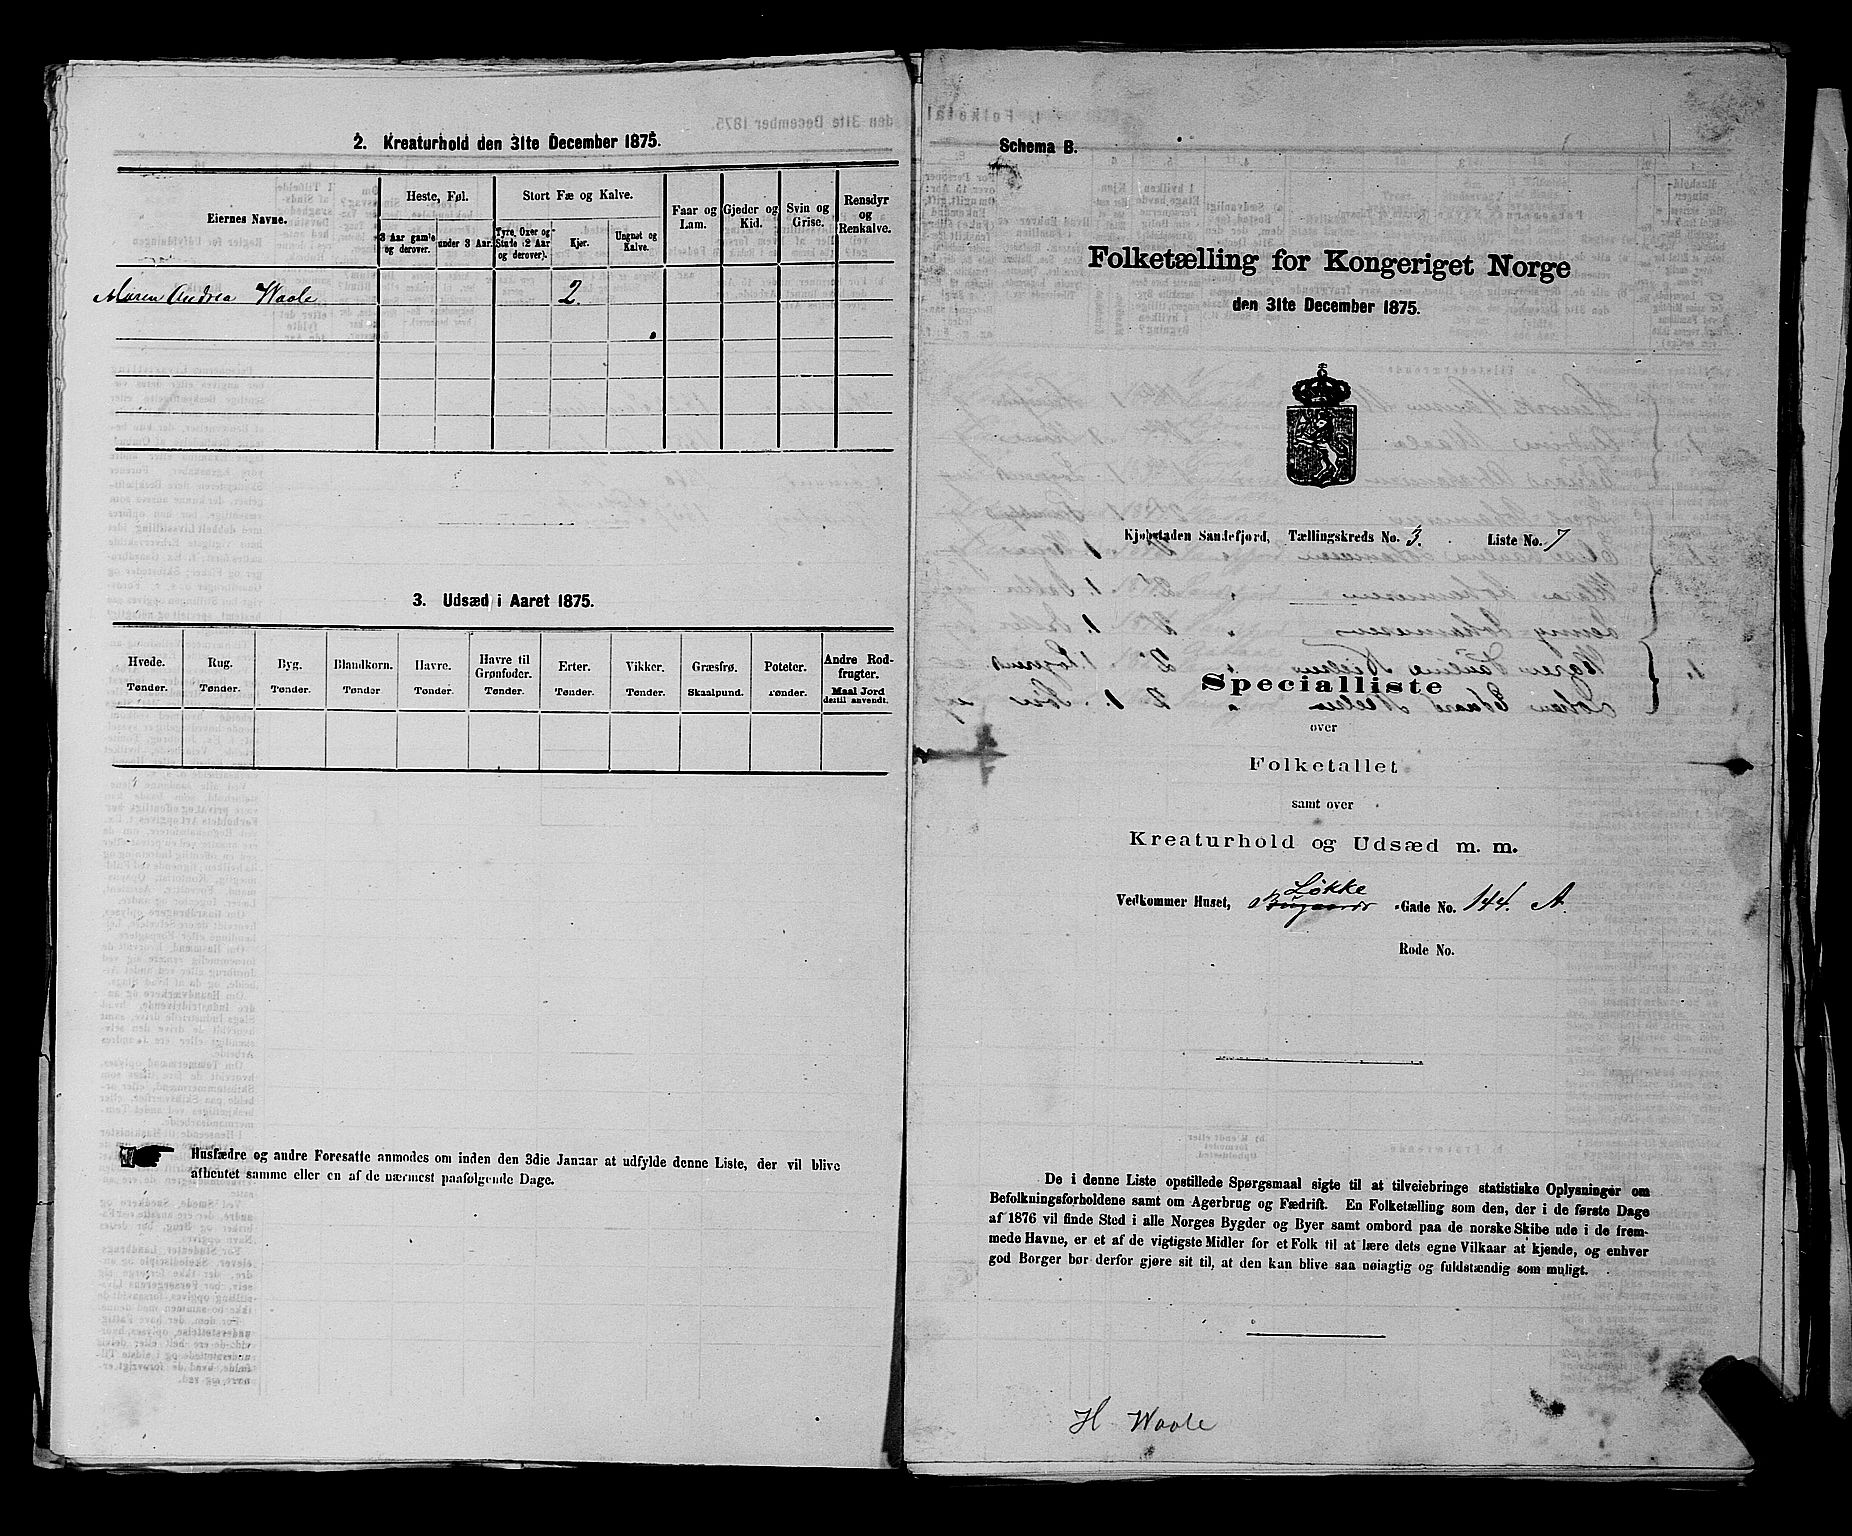 2. Kreaturhold den 31te December 1875.
Eiernes Navne.
Heste, Føl.
3 Aar gamle og derover.
under 3 Aar.
Stort Fæ og Kalve.
Tyre, Oxer og Stude (2 Aar og derover).
Kjør.
Ungnøt og Kalve.
Faar og Lam.
Gjeder og Kid.
Svin og Grise.
Rensdyr og Renkalve.
Maren Andrea Waale 2.
3. Udsæd i Aaret 1875.
Hvede. Tønder.
Rug. Tønder.
Byg. Tønder.
Blandkorn. Tønder
Havre. Tønder.
Havre til Grønfoder. Tønder.
Erter. Tønder.
Vikker. Tønder.
Græsfrø. Skaalpund.
Poteter. Tønder.
Andre Rodfrugter. Maal Jord dertil anvendt.
Husfædre og andre Foresatte anmodes om inden den 3die Januar at udfylde denne Liste, der vil blive
afhentet samme eller en af de nærmest paafølgende Dage.
Schema B.
Folketælling for Kongeriget Norge
den 31te December 1875.
Kjøbstaden Sandefjord, Tællingskreds No. 3. Liste No. 7
Specialliste
over
Folketallet
samt over
Kreaturhold og Udsæd m. m.
Løkke
Vedkommer Huset, Bugaards -Gade No. 144. A.
Rode No.
De i denne Liste opstillede Spørgsmaal sigte til at tilveiebringe statistiske Oplysninger om
Befolkningsforholdene samt om Agerbrug og Fædrift. En Folketælling som den, der i de første Dage
af 1876 vil finde Sted i alle Norges Bygder og Byer samt ombord paa de norske Skibe ude i de frem-
mede Havne, er et af de vigtigste Midler for et Folk til at lære dets egne Vilkaar at kjende, og enhver
god Borger bør derfor gjøre sit til, at den kan blive saa nøiagtig og fuldstændig som muligt.
H Waale